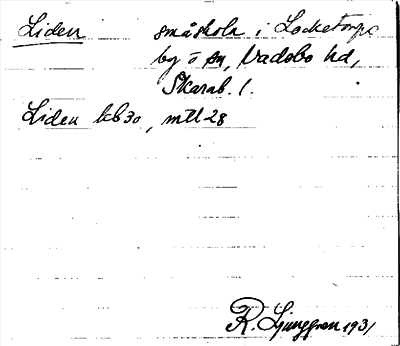 Liden småskola i Locketorps
by o sn, Vadsbo hd,
Skarab. l.
Liden kb 30, mtl 28
R. Ljunggren 1931